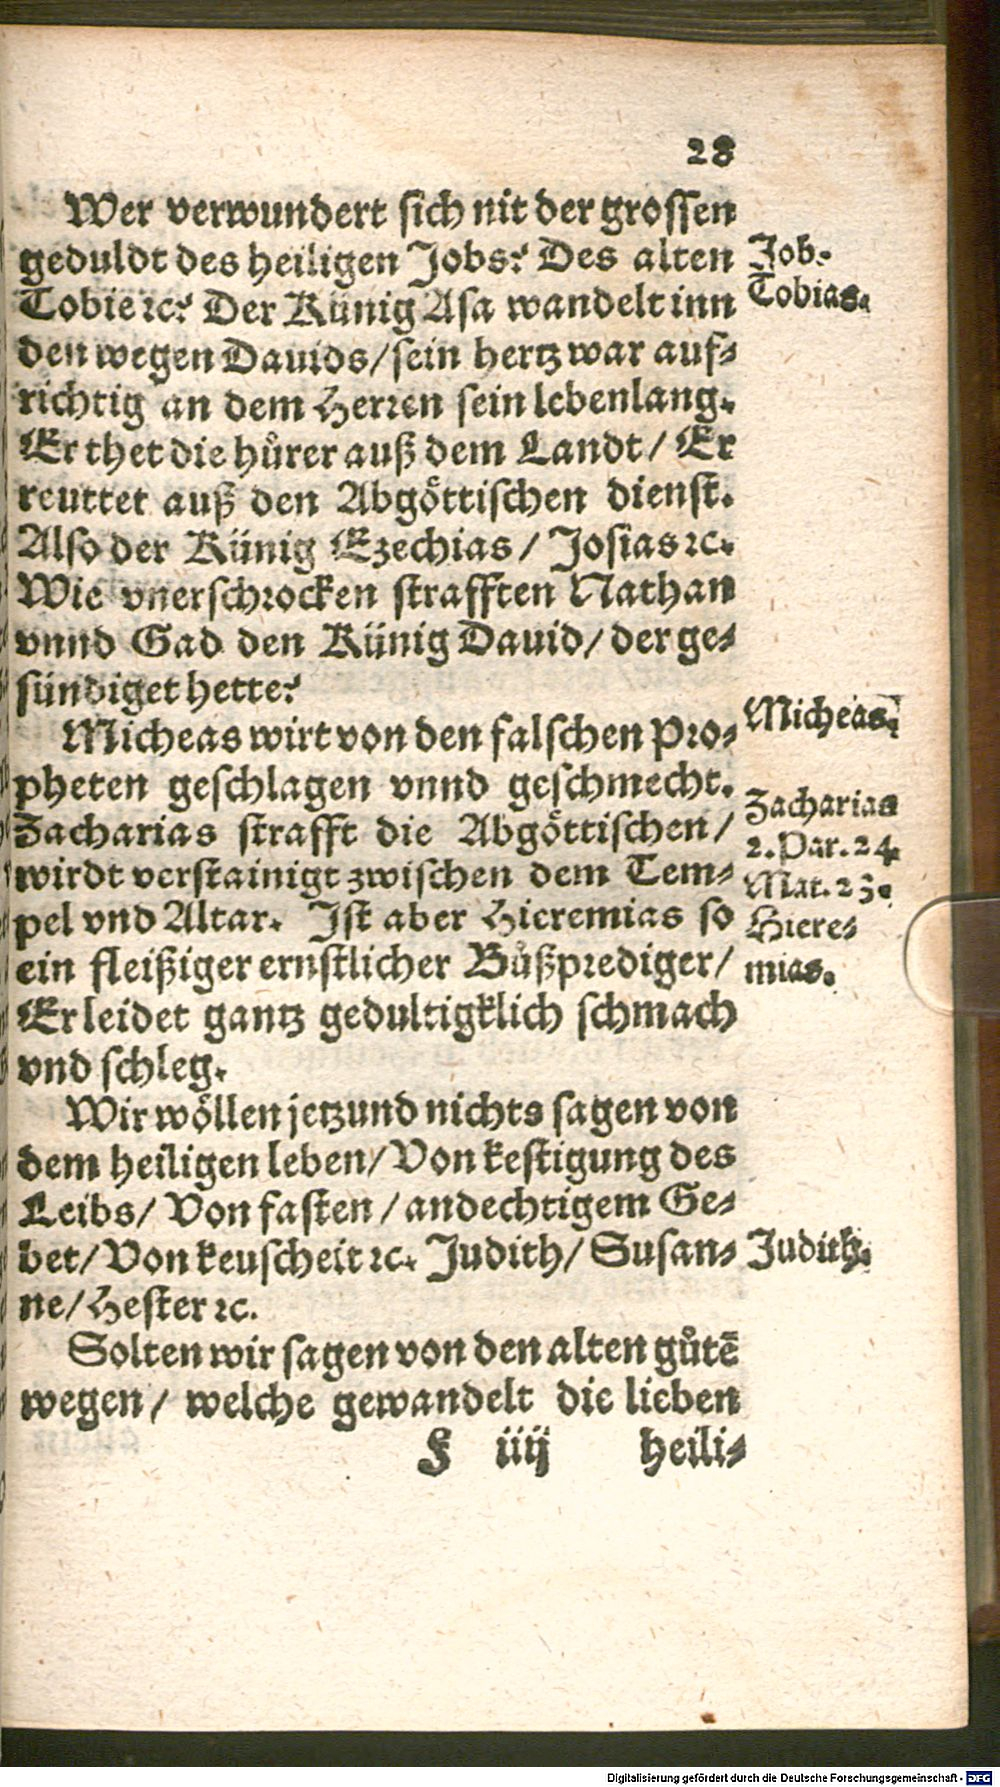 28
Wer verwundert sich nit der grossen
geduldt des heiligen Jobs? Des alten
Tobie ꝛc? Der Künig Asa wandelt inn
den wegen Dauids/ sein hertz war auf-
richtig an dem Herren sein lebenlang.
Er thet die hůrer auß dem Landt/ Er
reuttet auß den Abgöttischen dienst.
Also der Künig Ezechias/ Josias ꝛc.
Wie vnerschrocken strafften Nathan
vnnd Gad den Künig Dauid/ der ge-
sündiget hette?
Micheas wirt von den falschen Pro-
pheten geschlagen vnnd geschmecht.
Zacharias strafft die Abgöttischen/
wirdt verstainigt zwischen dem Tem-
pel vnd Altar. Ist aber Hieremias so
ein fleißiger ernstlicher Bůßprediger/
Er leidet gantz gedultigklich schmach
vnd schleg.
Wir wöllen jetzund nichts sagen von
dem heiligen leben/ Von kestigung des
Leibs/ Von fasten/ andechtigem Ge-
bet/ Von keuscheit ꝛc. Judith/ Susan-
ne/ Hester ꝛc.
Solten wir sagen von den alten gůtē
wegen/ welche gewandelt die lieben
F iiij heili-
Job.
Tobias.
Micheas.
Zacharias
2. Par. 24.
Mat. 23.
Hiere-
mias.
Judith.
Digitalisierung gefördert durch die Deutsche Forschungsgemeinschaft - DFG